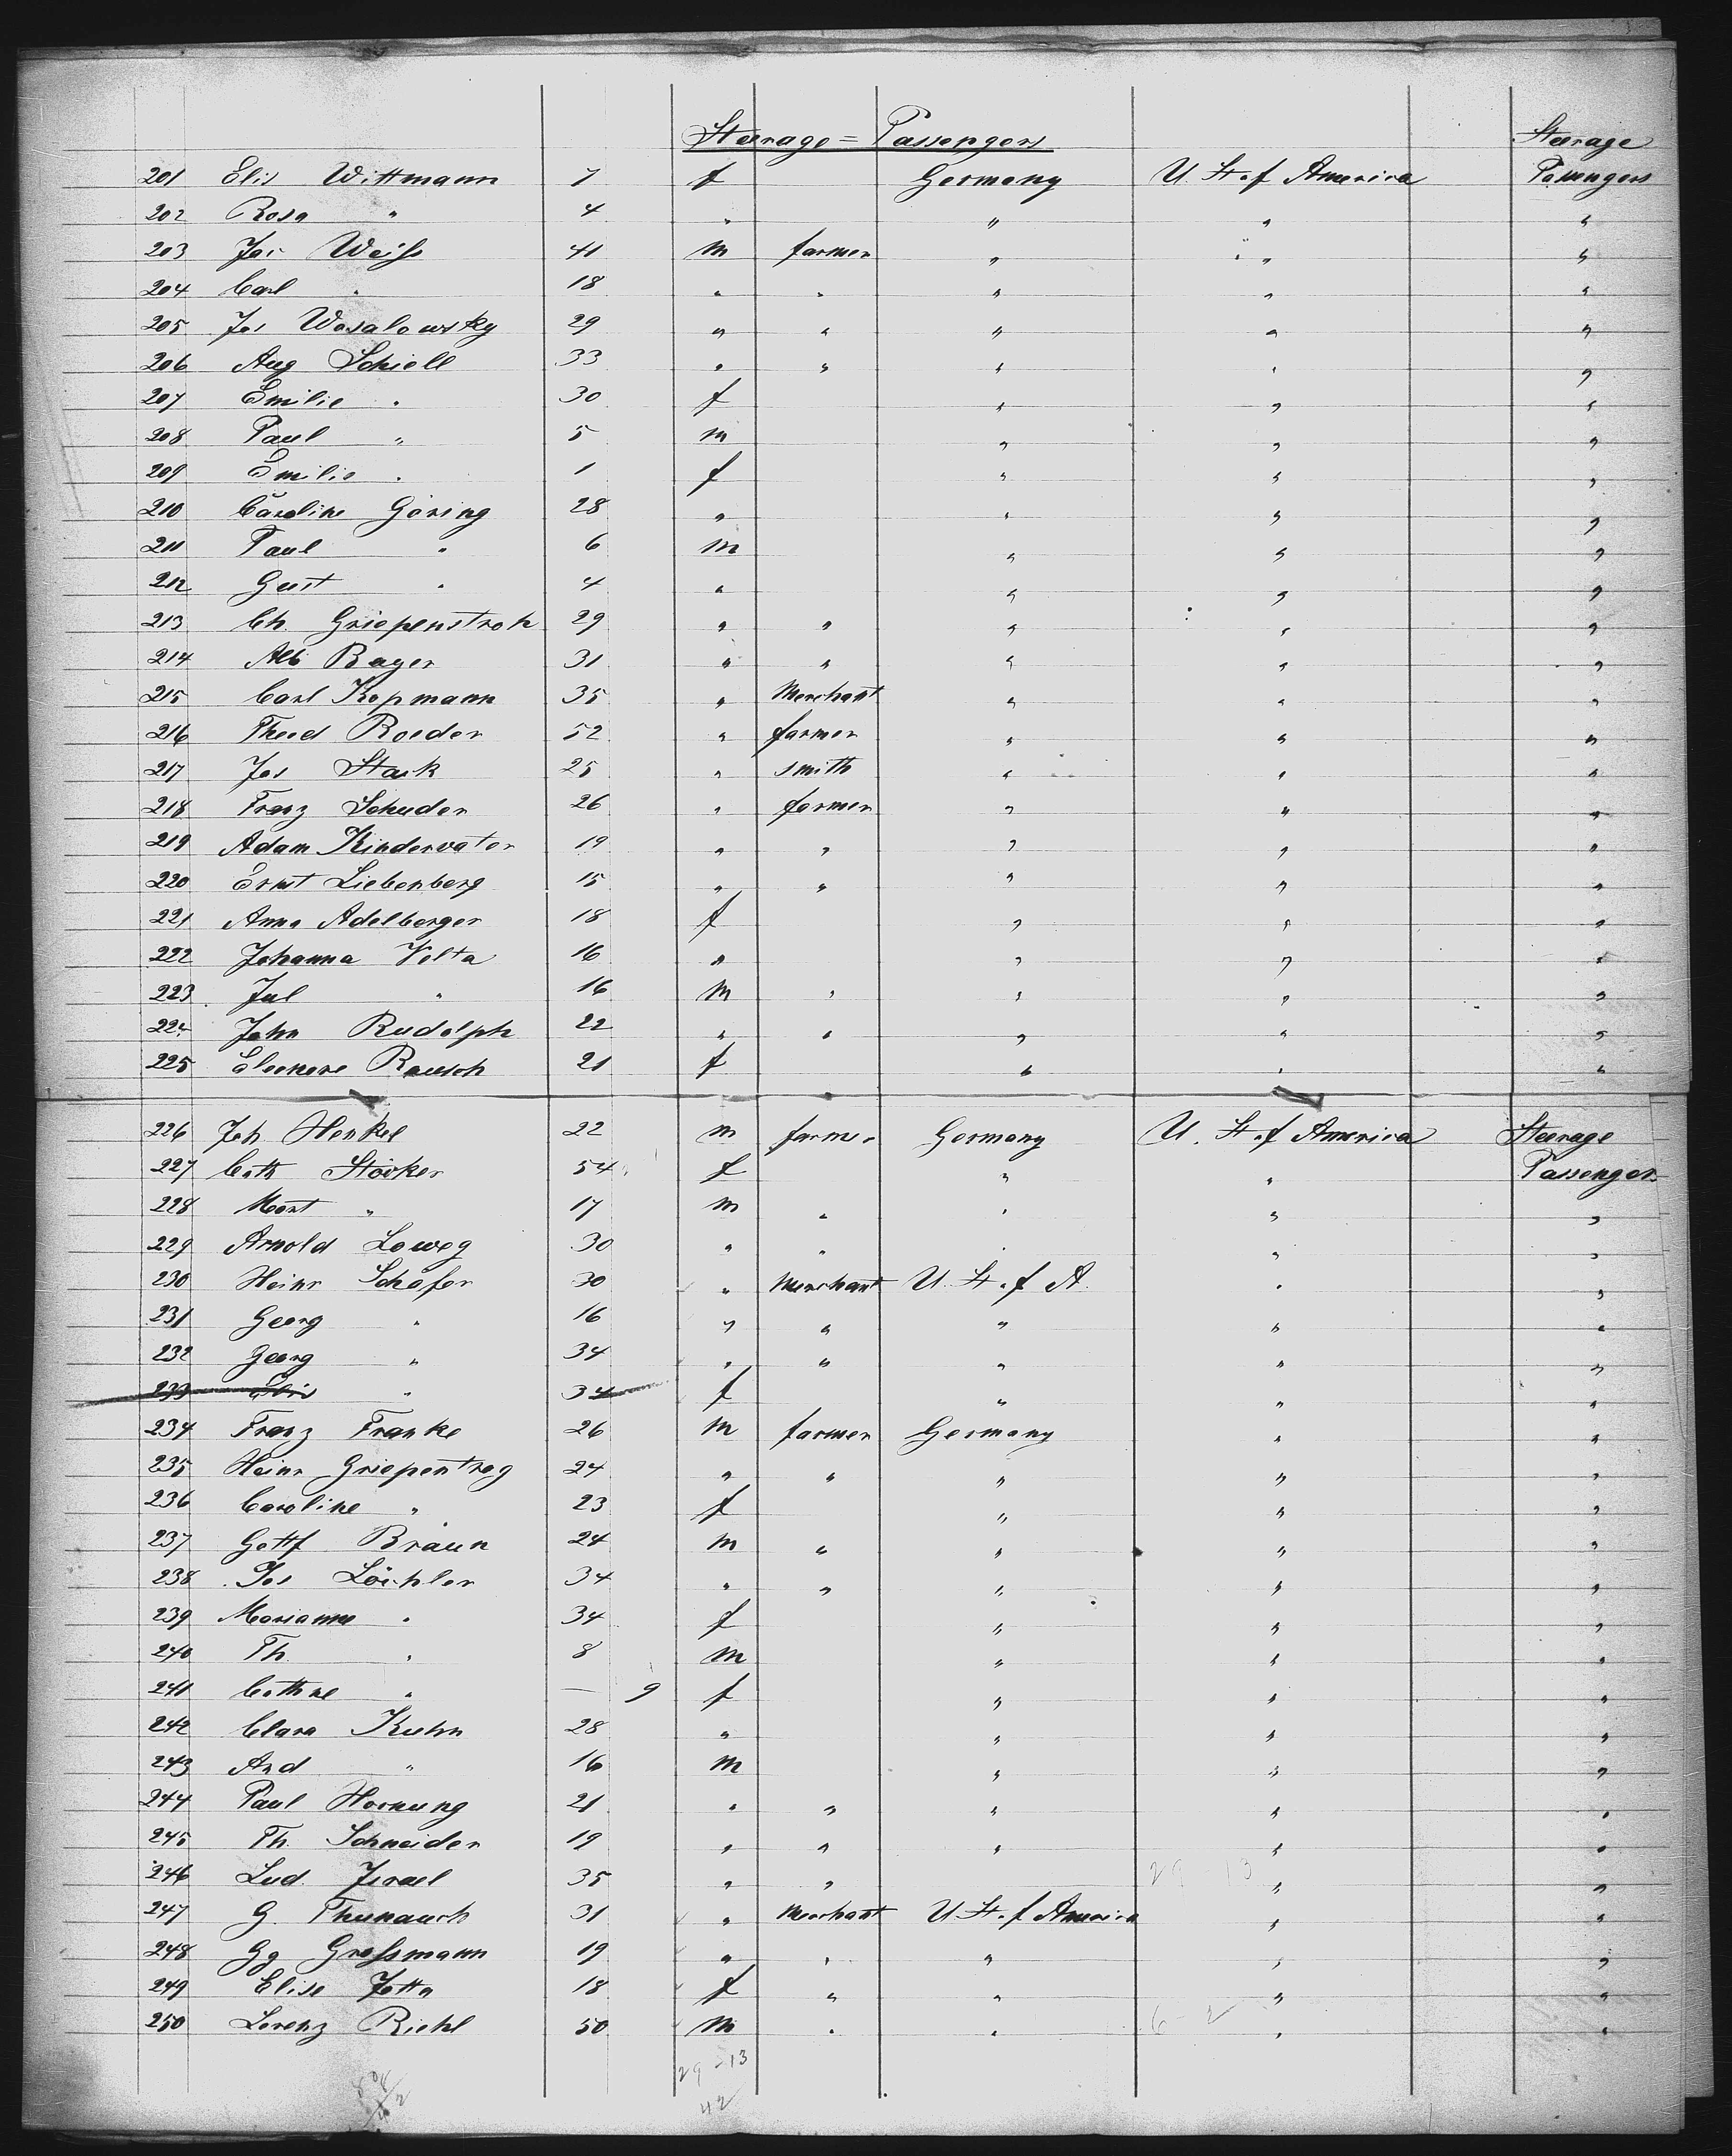 Steerage = Passengers Steerage
201 Elis Wittmann 7 f Germany U. St. of America Passengers
202 Rosa " 4 " " " "
203 Jos Weiss 41 m farmer " " "
204 Carl " 18 " " " " "
205 Jos Wosalowsky 29 " " " " "
206 Aug Schiell 33 " " " " "
207 Emilie " 30 f " " "
208 Paul " 5 m " " "
209 Emilie " 1 f " " "
210 Caroline Göring 28 " " " "
211 Paul " 6 m " " "
212 Gust " 4 " " " "
213 Ch. Griepenstroh 29 " " " " "
214 Alb Bayer 31 " " " " "
215 Carl Kopmann 35 " Merchant " " "
216 Theod Roeder 52 " farmer " " "
217 Jos Stark 25 " smith " " "
218 Franz Schuder 26 " farmer " " "
219 Adam Kindervater 19 " " " " "
220 Ernst Liebenberg 15 " " " " "
221 Anna Adelberger 18 f " " "
222 Johanna Volta 16 " " " "
223 Jul " 16 m " " " "
224 John Rudolph 22 " " " " "
225 Eleonore Rausch 21 f " " "
226 Joh Henkel 22 m farmer Germany U. St. of America Steerage
227 Cath Stöcker 54 f " " Passenger
228 Mart " 17 m " " " "
229 Arnold Loweg 30 " " " " "
230 Heinr Schäfer 30 " Merchant U. St. of A. " "
231 Georg " 16 " " " " "
232 Georg " 34 " " " " "
233 Elis " 34 f " " "
234 Franz Franke 26 m farmer Germany " "
235 Heinr Griepentrog 24 " " " " "
236 Caroline " 23 f " " "
237 Gottf Braun 24 m " " " "
238 Jos Löchler 34 " " " " "
239 Marianne " 34 f " " "
240 Th. " 8 m " " "
241 Cathne " — 9 f " " "
242 Clara Kuhn 28 " " " "
243 And " 16 m " " "
244 Paul Hornung 21 " " " " "
245 Th. Schneider 19 " " " " "
246 Lud. Israel 35 " " 29 13 " "
247 G. Thunauch 31 " Merchant U. St. of America " "
248 Gg Grossmann 19 " " " " "
249 Elise Jotta 18 f " " " "
250 Lorenz Riehl 50 m " " 6-2 " "
29-13
42